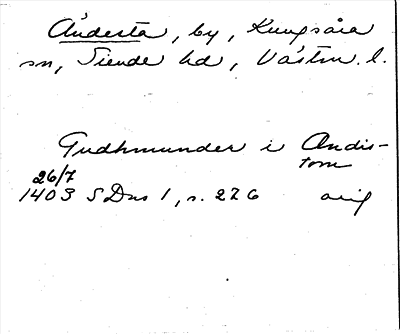 Åndesta, by, Kungsåra
sn, Siende hd, Västm. l.
Gudhmunder i Andis-
tom
26/7
1403 SDns 1, s. 226 orig